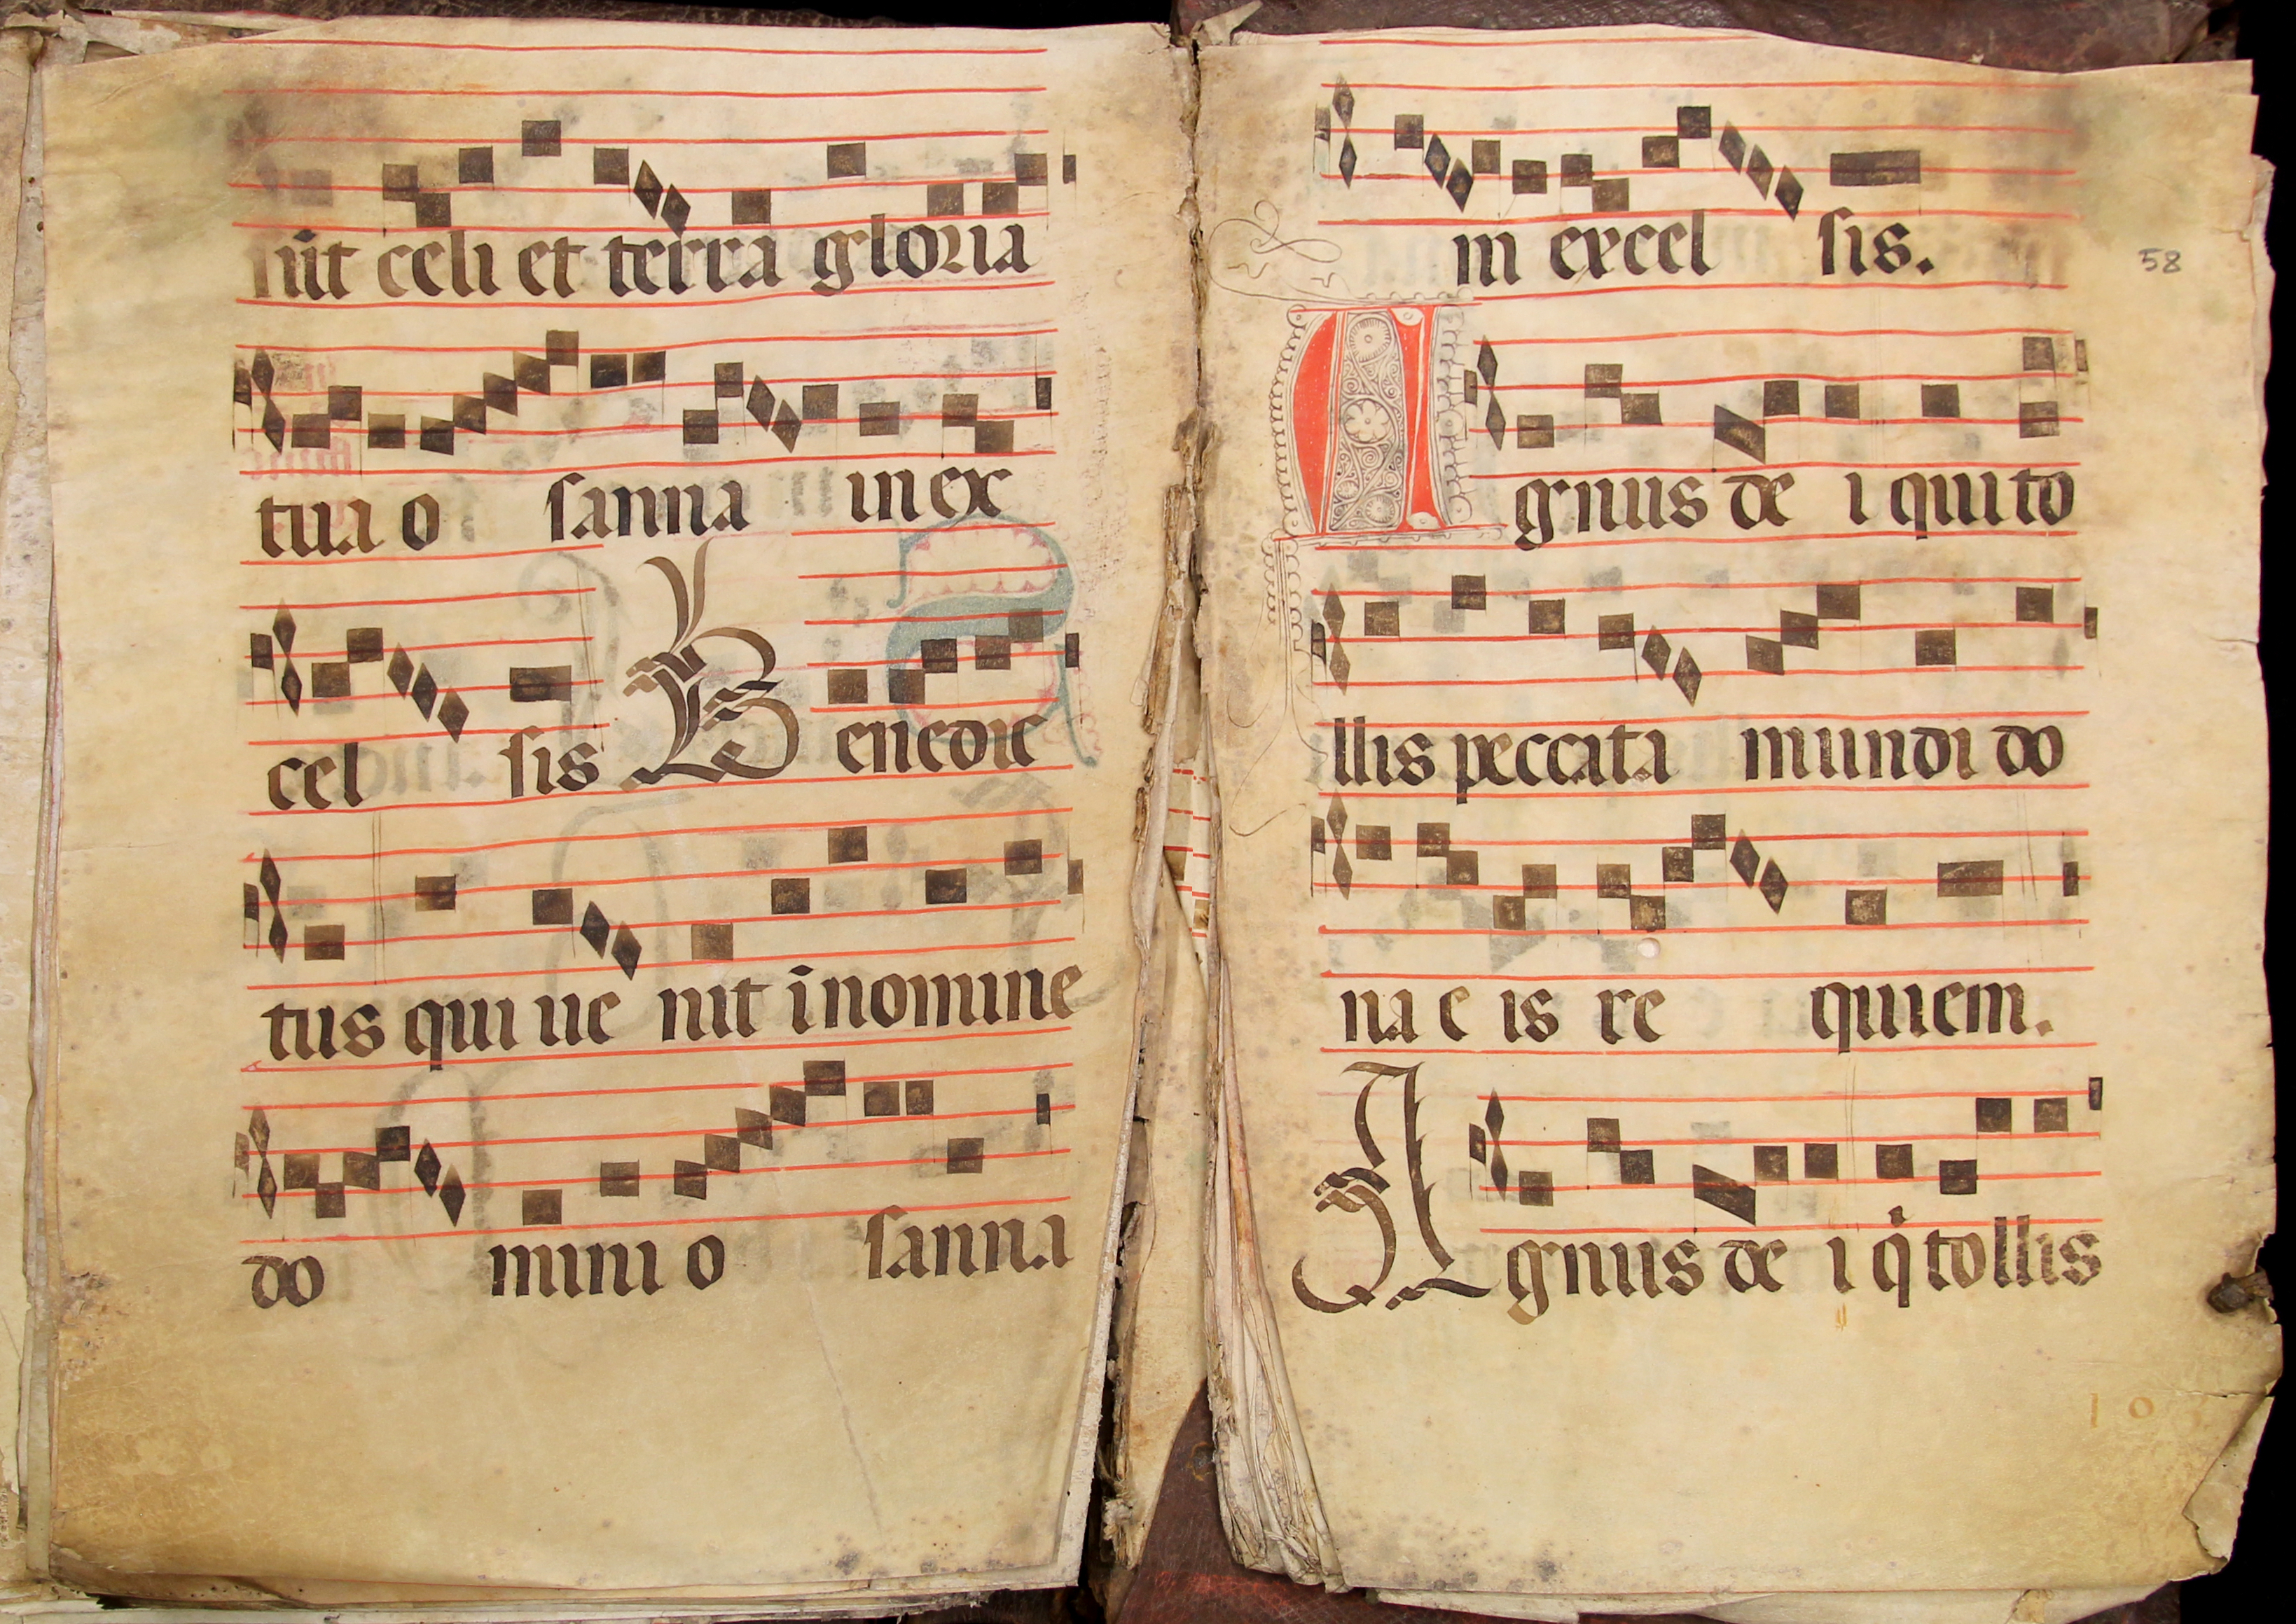 nīt celi et terra gloria
tua o sanna in ex
cel sis Benedic
tus qui ue nit ī nomine
do mini o sanna
in excel sis.
58
Agnus de i qui to
llis peccata mundi do
na e is re quiem.
Agnus de i q̇ tollis